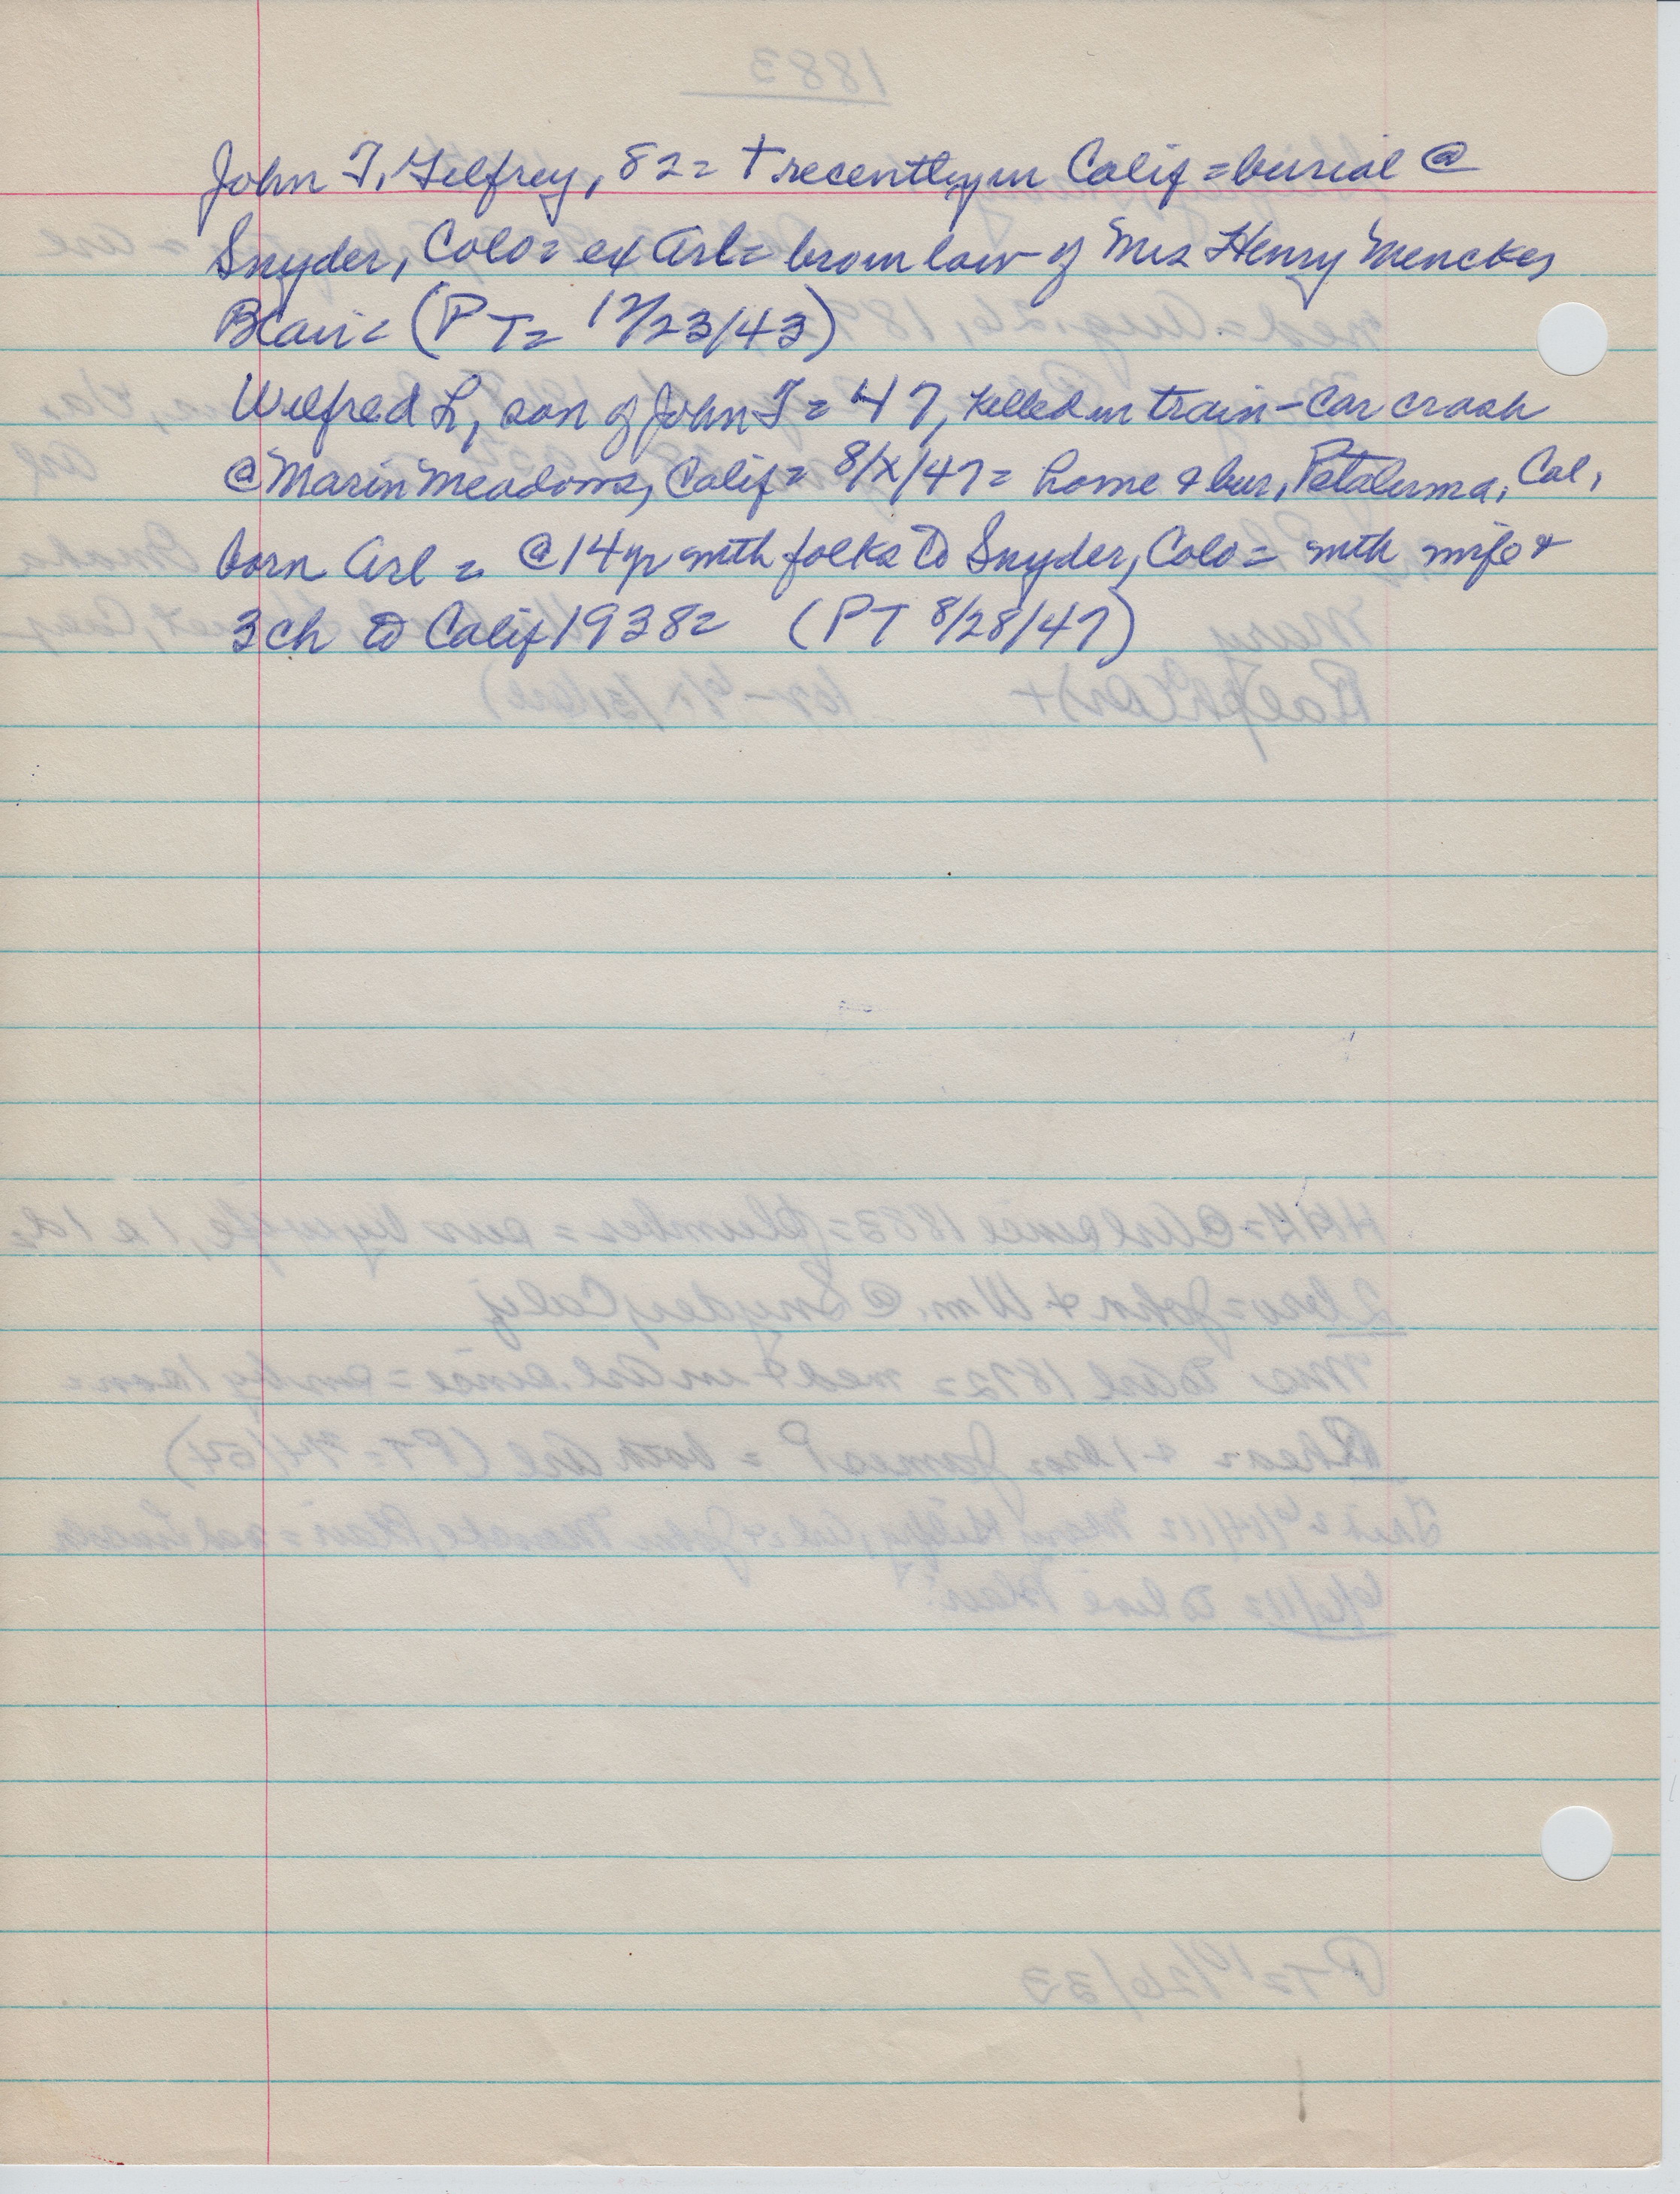 John T. Gilfrey, 82 = † recently in Calif = burial @
Snyder, Colo = ex Arl = bro in law of Mrs Henry Mencke,
Blair = (PT = 12/23/43)
Wilfred L, son of John T = 47, killed in train-car crash
@ Marin Meadows, Calif = 8/x/47 = home & bur, Petaluma, Cal,
born Arl = @ 14 yr with folks to Snyder, Colo = with wife &
3 ch to Calif 1938 = (PT 8/28/47)